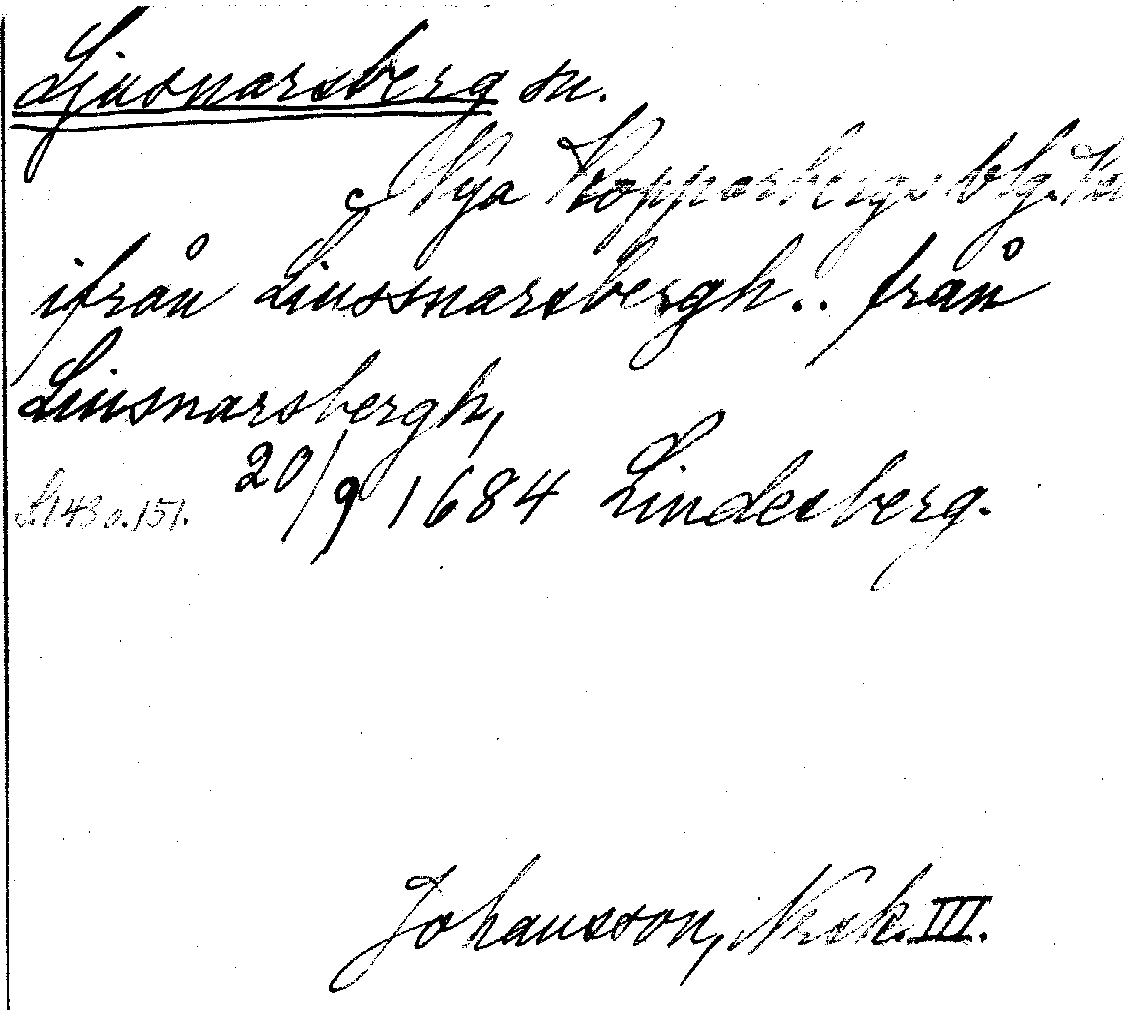 Ljusnarsberg sn.
Nya Kopparbergs blg. Vm
ifrån Liussnarsbergh.. från
Liusnarsbergh,
S. 148 o. 151. 20/9 1684 Lindesberg.
Johansson, Nsk. III.